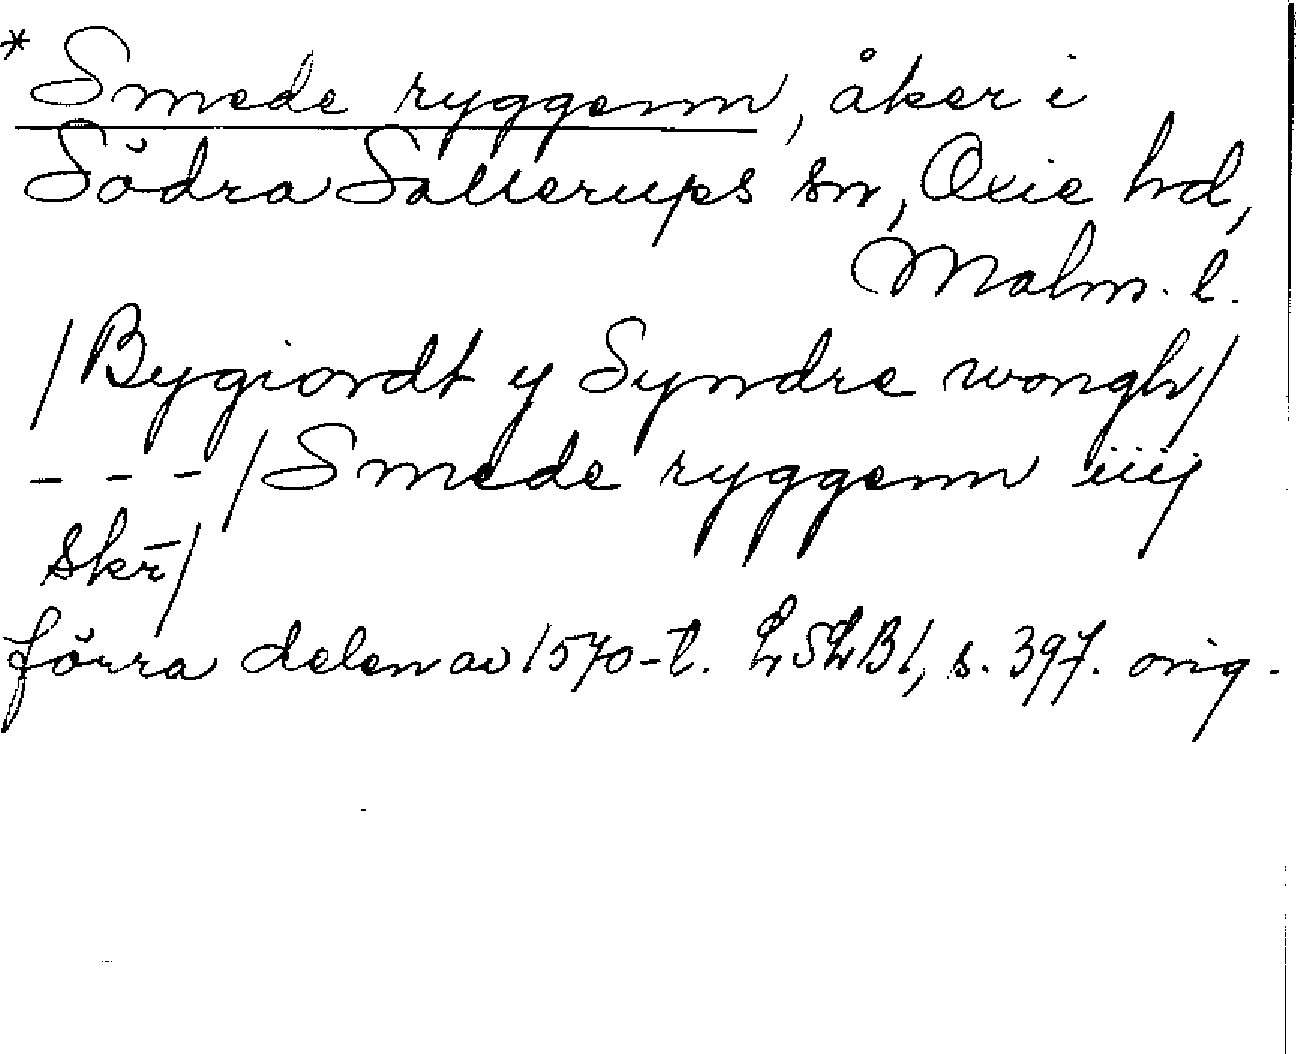 * Smede ryggenn, åker i
Södra Sallerups sn, Oxie hd,
Malm. l.
/Bygiordt y Syndre wongh/
- - - /Smede ryggenn iiij
skr̄/
förra delen av 1570-t. LSLB1, s. 397. orig.